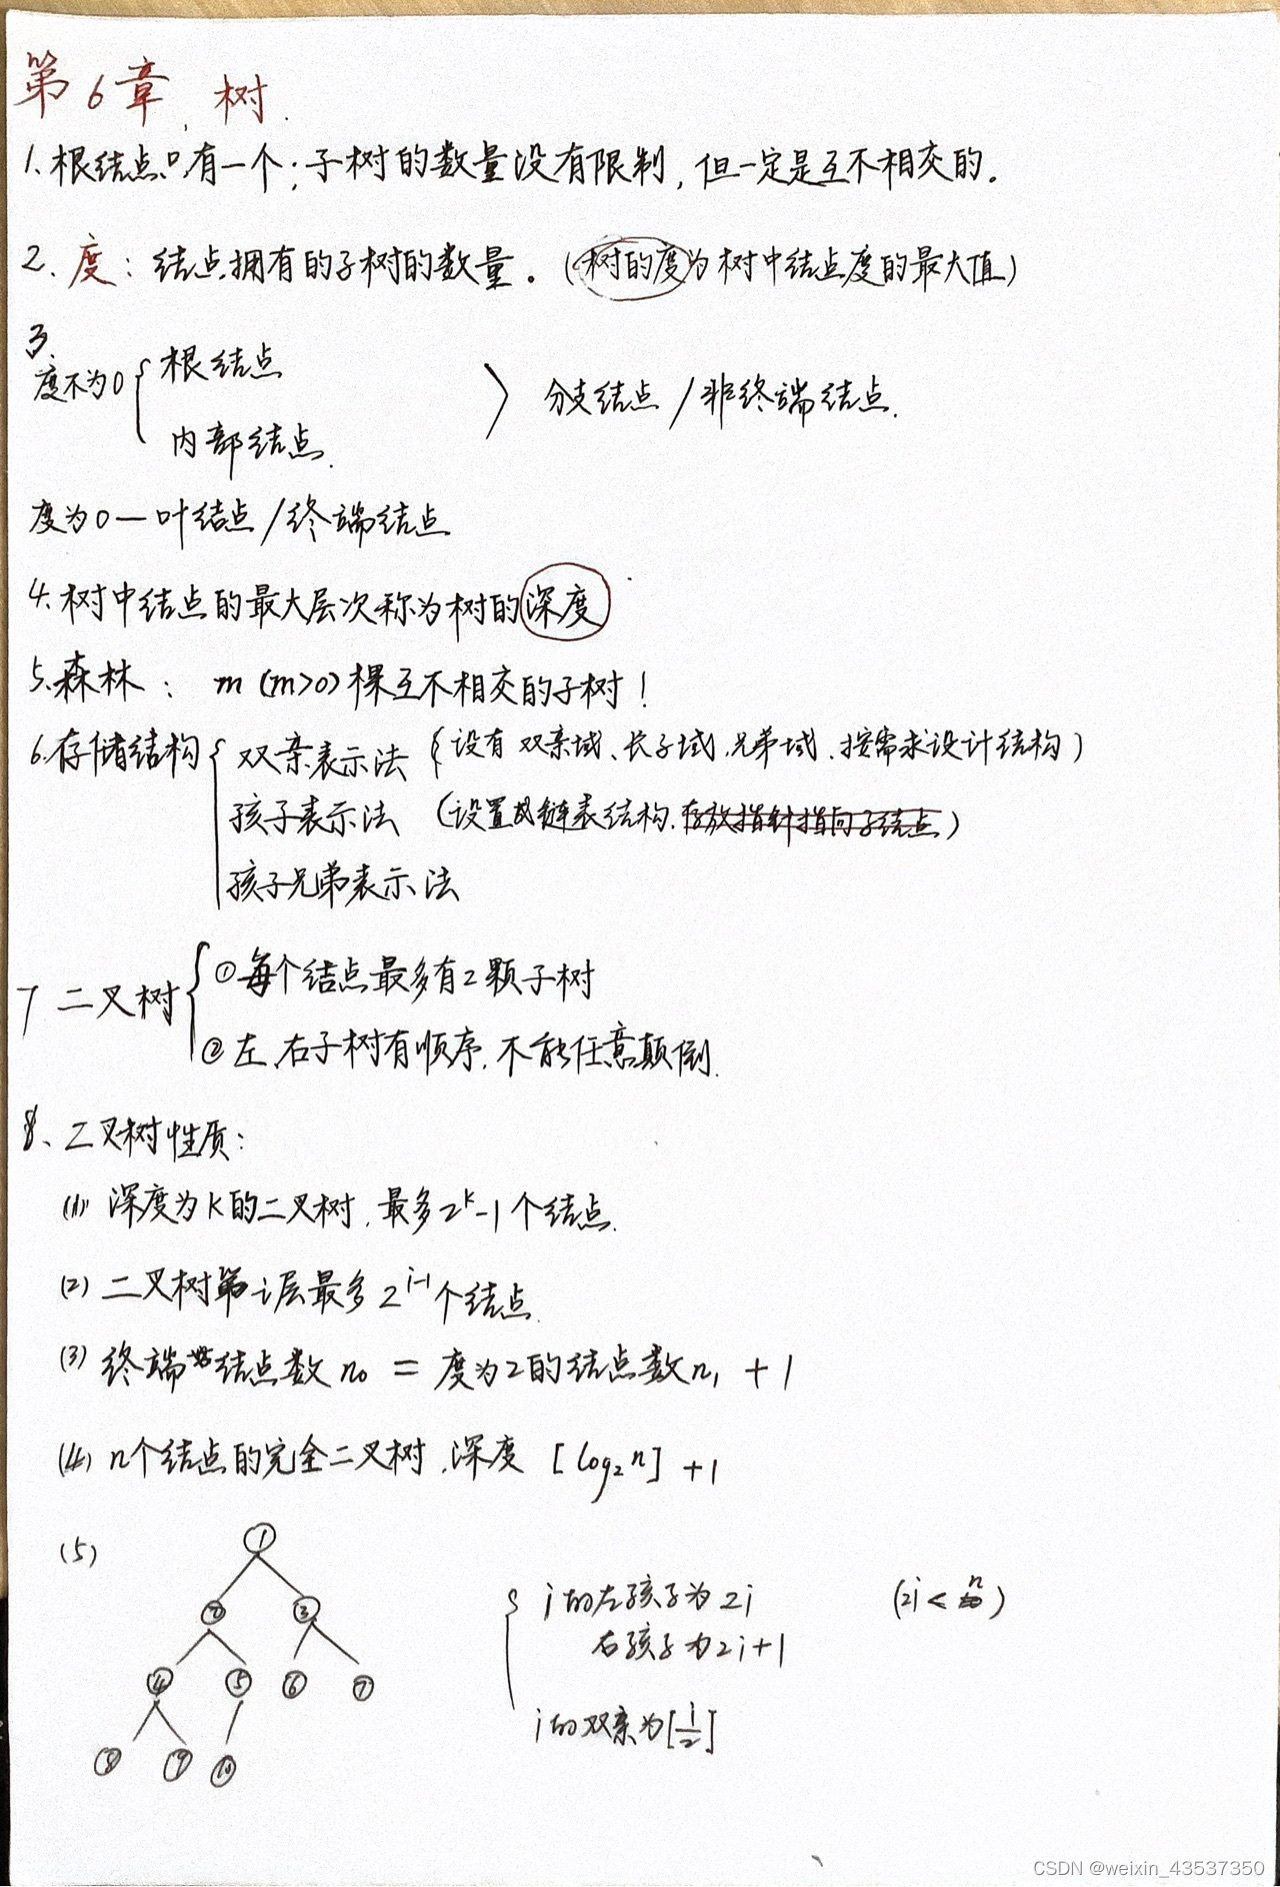 第6章、树.
1.根结点只有一个;子树的数量没有限制,但一定是互不相交的。
2.度:结点拥有的子树的数量。(树的度为树中结点度的最大值)
3.
度不为0 { 根结点
内部结点. } 分支结点/非终端结点.
度为0—叶结点/终端结点
4.树中结点的最大层次称为树的深度
5.森林: m(m>0)棵互不相交的子树!
6.存储结构 { 双亲表示法 (设有双亲域、长子域,兄弟域.按需求设计结构)
孩子表示法 (设置成链表结构.存放指针指向子结点)
孩子兄弟表示法
7 二叉树 { ①每个结点最多有2颗子树
②左、右子树有顺序,不能任意颠倒.
8、二叉树性质:
(1) 深度为k的二叉树,最多2^k-1个结点.
(2) 二叉树第i层最多2^{i-1}个结点.
(3) 终端结点数n₀ = 度为2的结点数n₁ + 1
(4) n个结点的完全二叉树,深度 [log₂n] +1
(5)
①
② ③
④ ⑤ ⑥ ⑦
⑧ ⑨ ⑩
{ i的左孩子为2i (2i<n)
右孩子为2i+1
i的双亲为[i/2]
CSDN @weixin_43537350